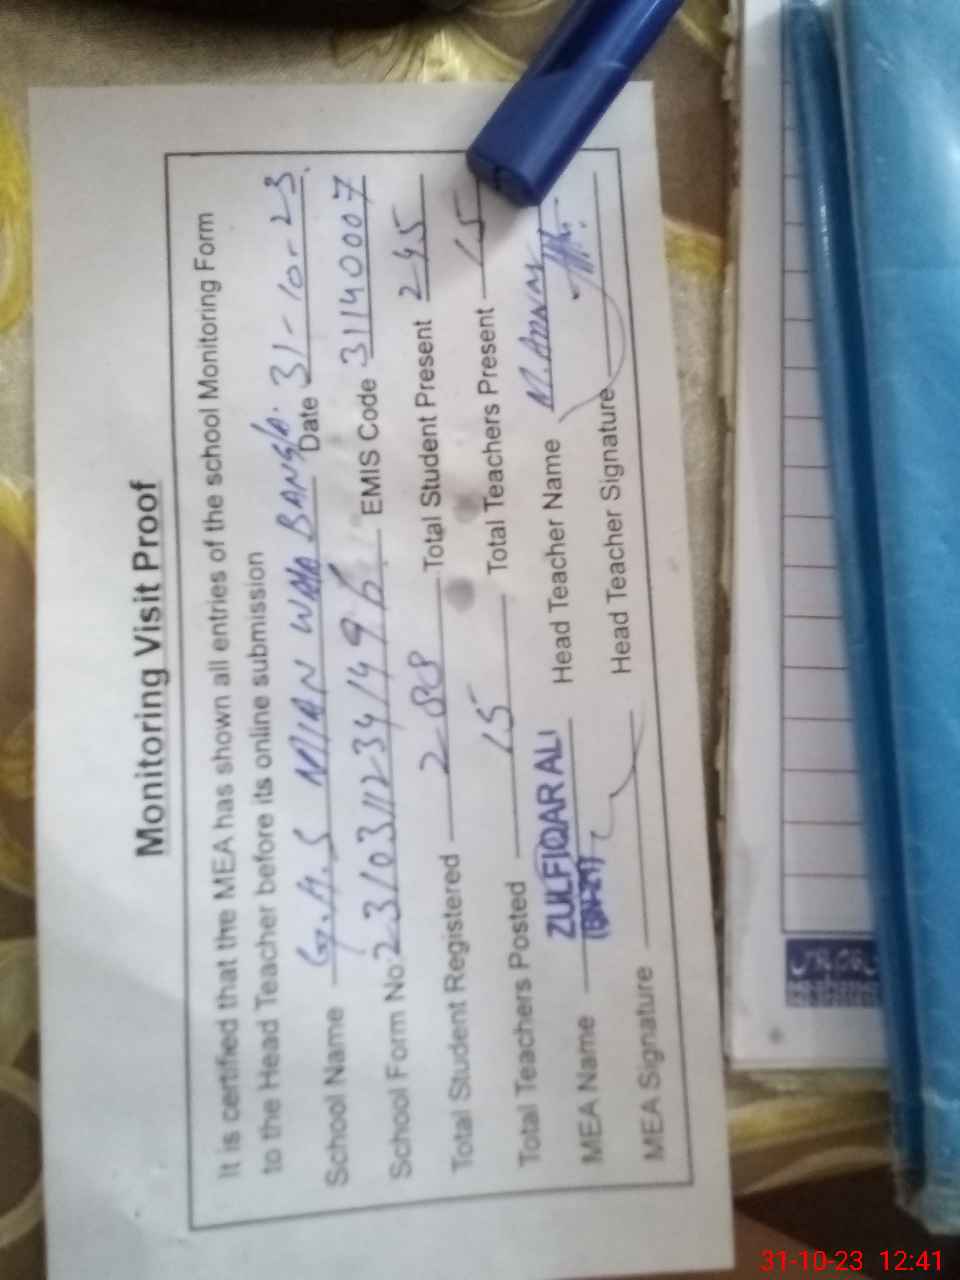 Monitoring Visit Proof
It is certified that the MEA has shown all entries of the school Monitoring Form
to the Head Teacher before its online submission
School Name G.H.S MIAN WALA BANGLA. Date 31-10-23.
School Form No. 23103112341496 EMIS Code 31140007
Total Student Registered 288 Total Student Present 245
Total Teachers Posted 15 Total Teachers Present 15
MEA Name ZULFIQAR ALI Head Teacher Name M. ADNAN
MEA Signature Head Teacher Signature
31-10-23 12:41